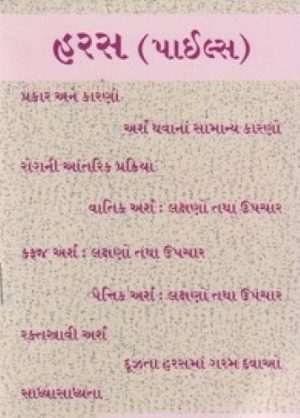 હરસ (પાઈલ્સ)
પ્રકાર અને કારણો
અર્શ થવાનાં સામાન્ય કારણો
રોગની આંતરિક પ્રક્રિયા
વાતિક અર્શ : લક્ષણો તથા ઉપચાર
કફજ અર્શ : લક્ષણો તથા ઉપચાર
પૈત્તિક અર્શ : લક્ષણો તથા ઉપચાર
રક્તસ્ત્રાવી અર્શ
દૂઝતા હરસમાં ગરમ દવાઓ
સાધ્યાસાધ્યતા